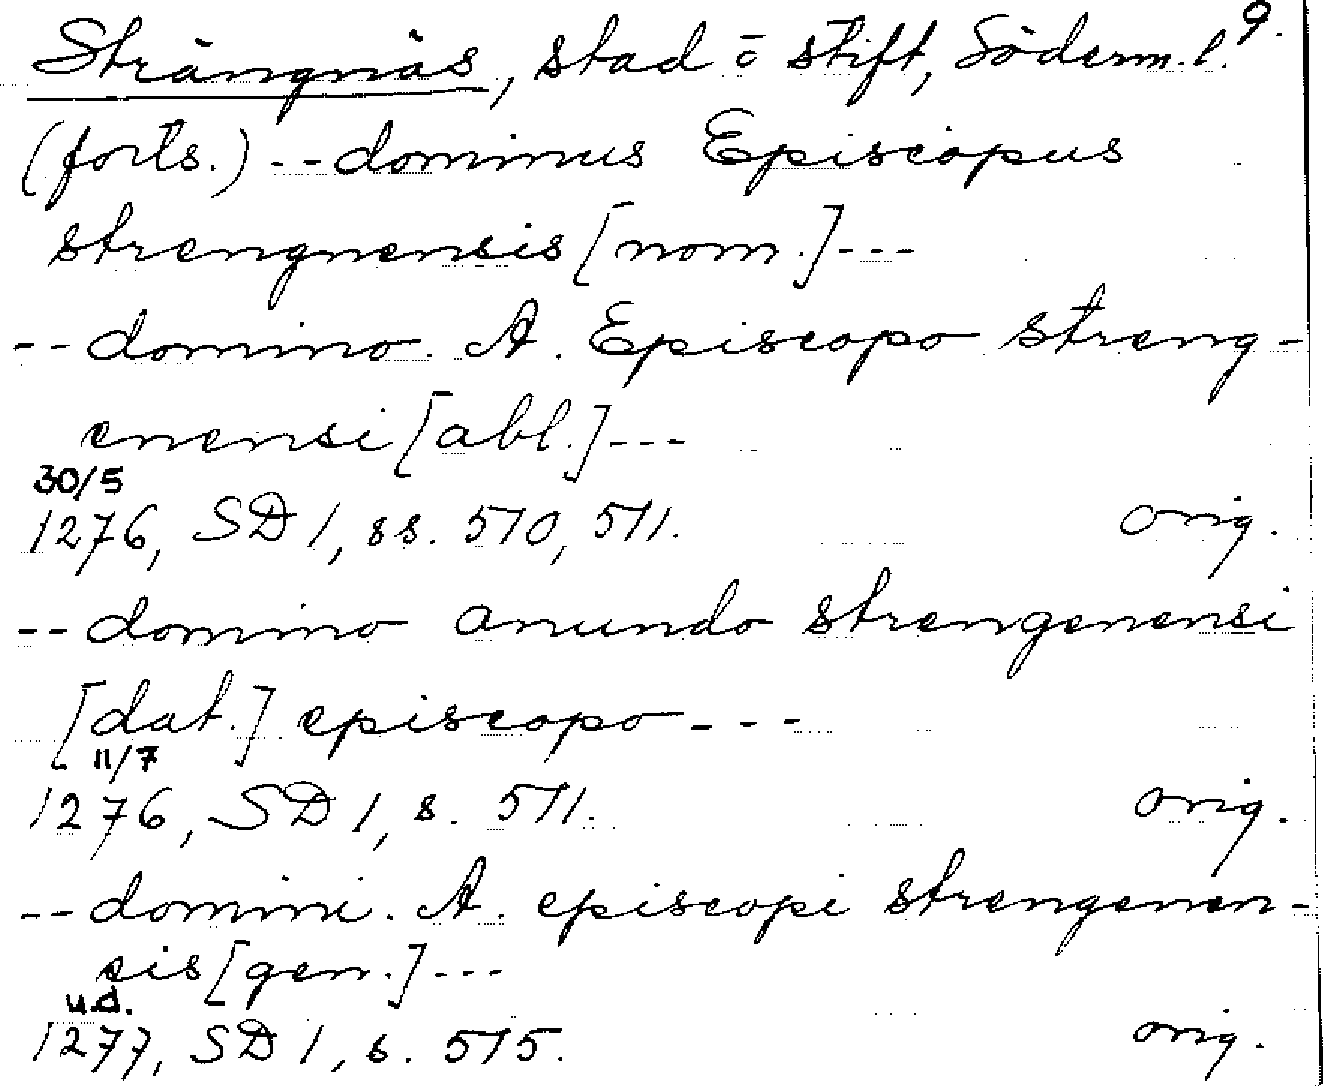 Strängnäs, stad o stift, Söderm.l. 9.
(forts.) -- dominus Episcopus
strengnensis [nom.] ---
-- domino. A. Episcopo streng-
enensi [abl.] ---
30/5
1276, SD 1, ss. 510, 511. orig.
-- domino anundo strengenensi
[dat.] episcopo ---
11/7
1276, SD 1, s. 511. orig.
-- domini. A. episcopi strengenen-
sis [gen.] ---
u.d.
1277, SD 1, s. 515. orig.